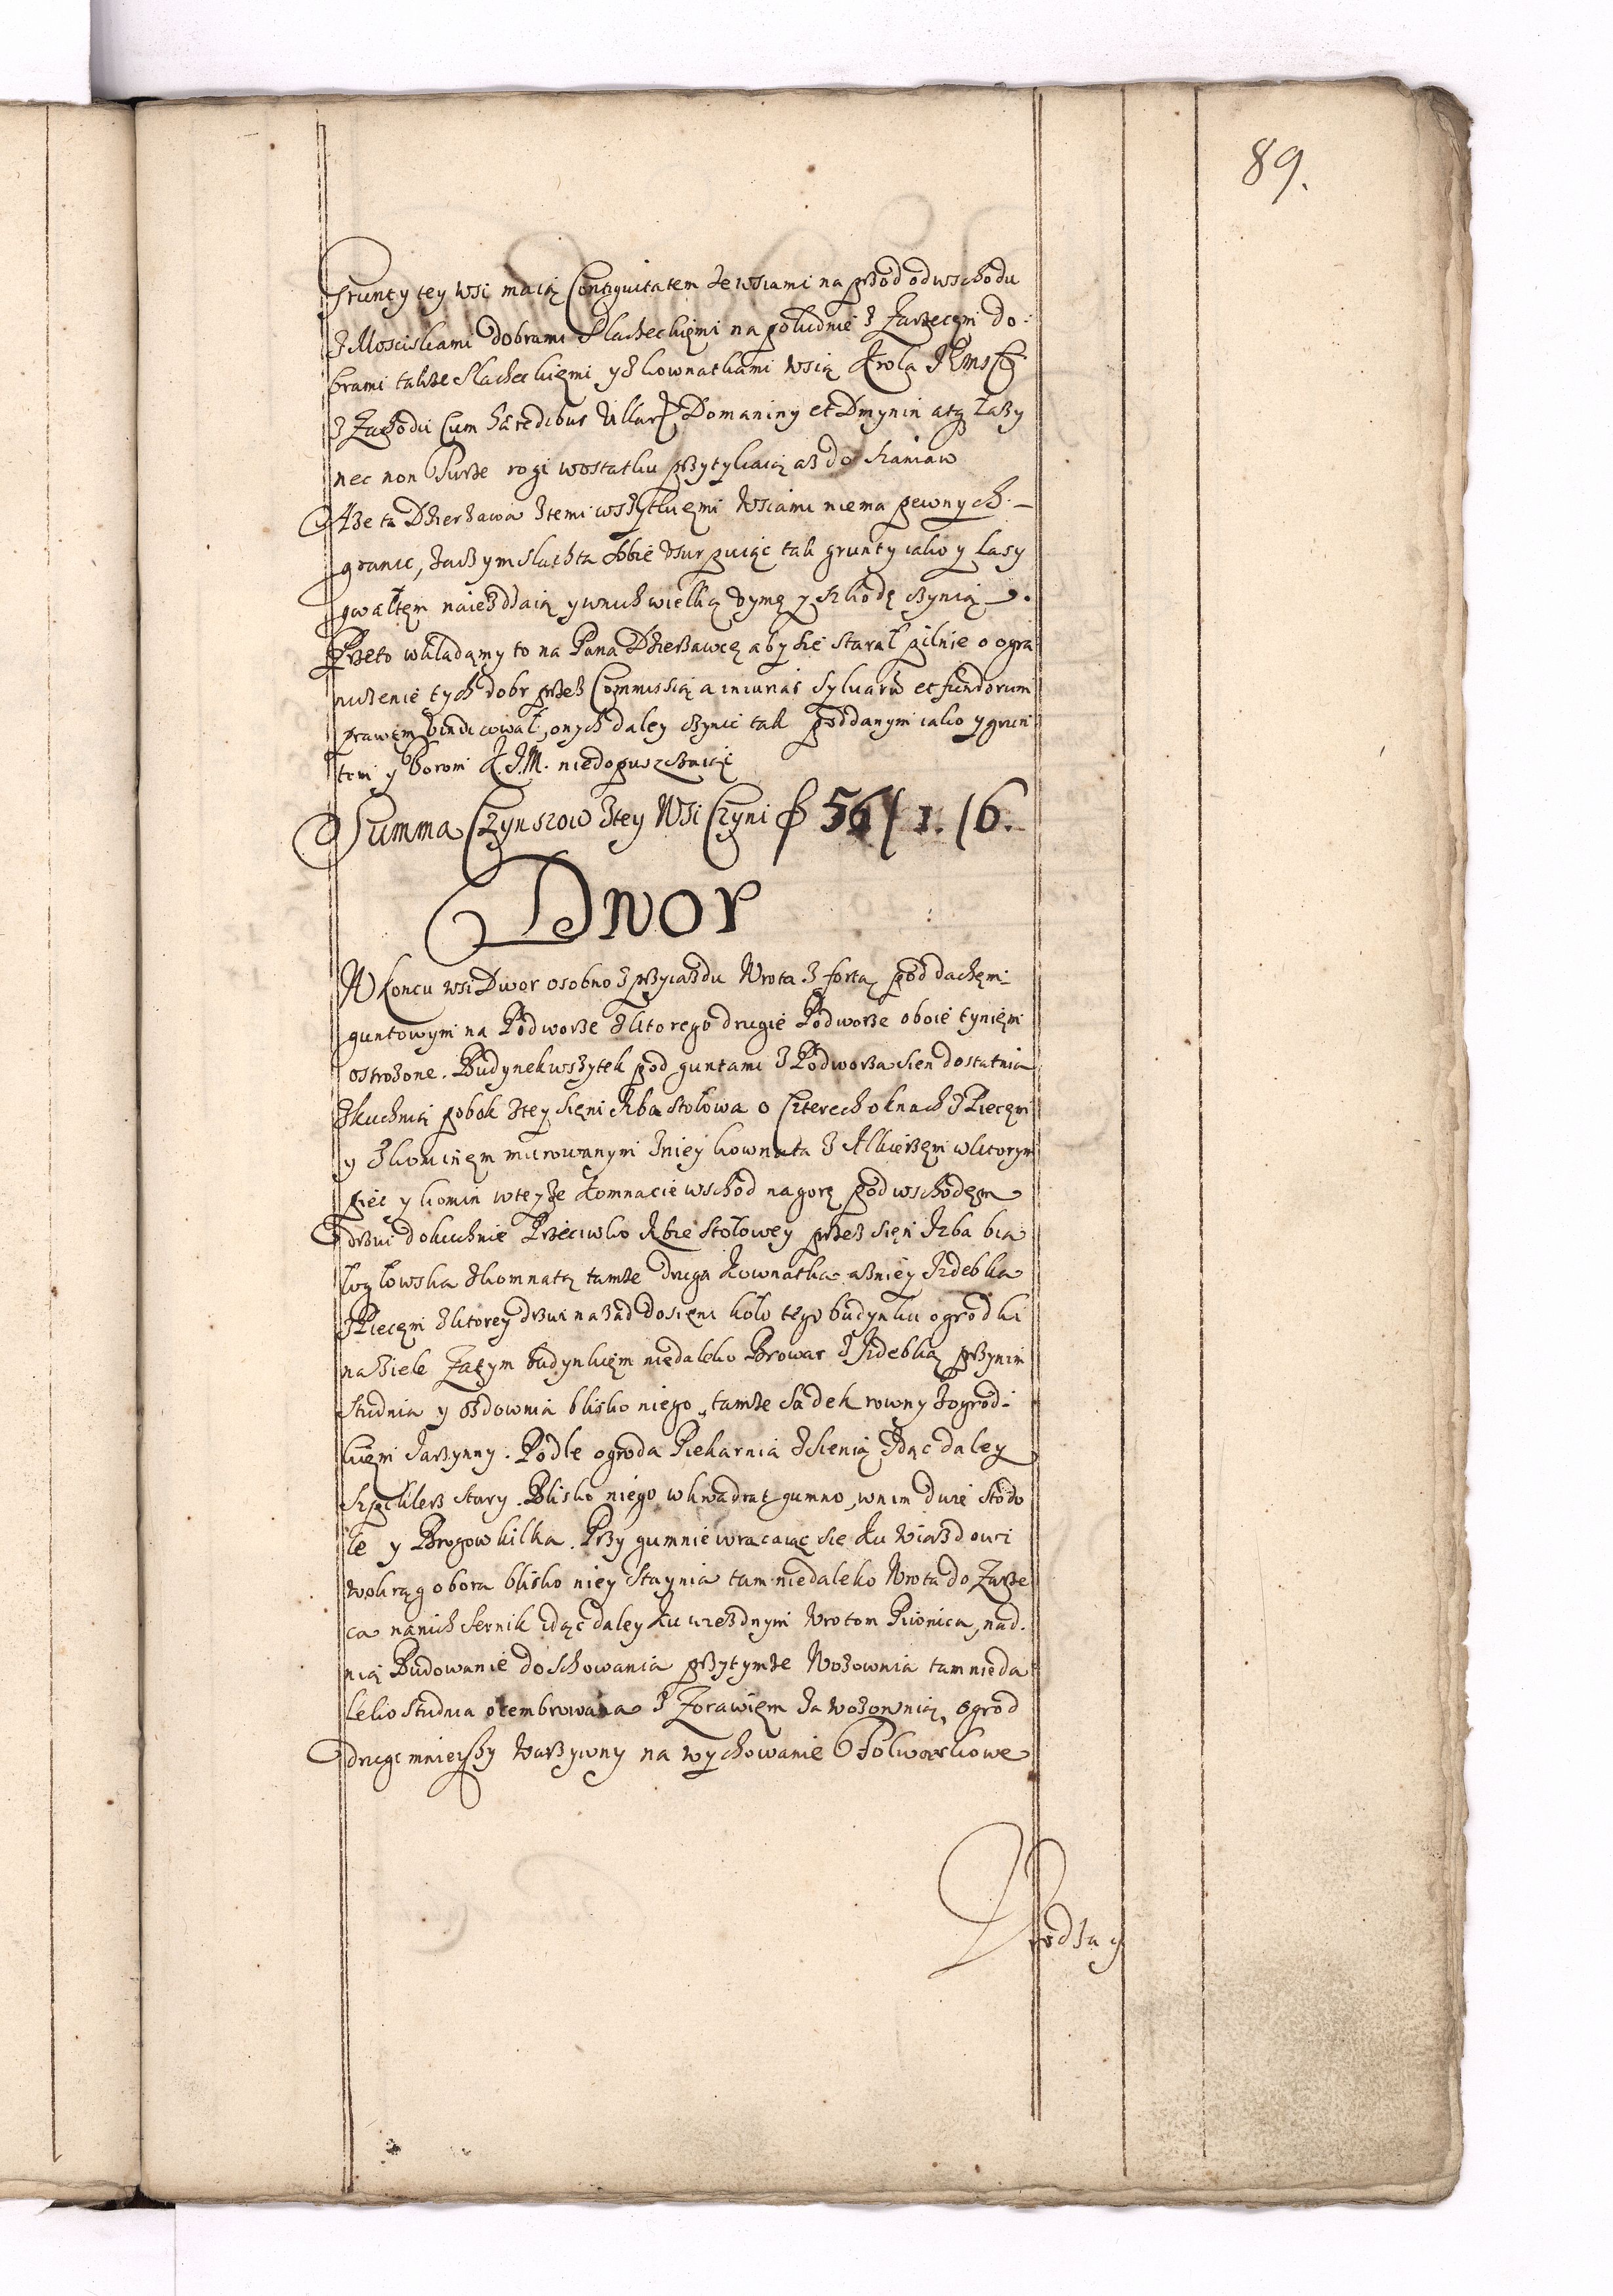 89.
Grunty tey wsi maią Contiguitatem ze wsiami na przod od wschodu
z Mosciskami dobrami Slacheckięmi na południe z Zarzecęm do-
brami takze slacheckięmi y z kownatkami wsią Krola JEmsci
z Zachodu Cum haredibus Villarum Domaniny et Dmynin atq Łazy
nec non Burze rogi wostatku przytykaią asz do Kaniaw
Aze ta Dzierzawa ztemi wszytkięmi Wsiami niema pewnych
granic, zaczym slachta sobie Vsurpuiąc tak grunty iako y Lasy
gwałtęm naiezdzaią y wnich wielką rymę y szkodę czynią.
Przeto wkładamy to na Pana Dzierzawcę aby sie starał pilnie o ogra
niczenie tych dobr przez Commissią a iniurias Sylvarum et fundorum
prawęm vindicował, onych daley czynic tak poddanym iako y grun
tom y Borom K.J.M. niedopuszczaiąc
Summa Czynszow ztey Wsi Czyni f 56/1./6.
Dwor
W koncu wsi Dwor osobno z przyiazdu Wrota z fortą pod dachęm
guntowym na Podworze z ktorego drugie Podworze oboie tynięm
ostrozone. Budynek wszytek pod guntami z Podworza sien dostatnia
z kuchnią pobok ztey sięni Izba stołowa o Czterech oknach z Piecęm
y z kominęm murowanym zniey kownata z Alkierzęm w ktorym
piec y komin wteyze Komnacie wschod nagorę pod wschodęm
drzwi do kuchnie Przeciwko Izbie Stołowey przez sięn Izba bia
łogłowska z komnatą tamze druga kownatka azniey Izdebka
z Piecęm z ktorey drzwi nazad do sięni koło tego budynku ogrodki
na ziele Za tym budynkięm niedaleko Browar z Izdebką przynim
studnia y ozdownia blisko niego, tamze sadek rowny z ogrod-
kięm Jarzynny. Podle ogroda Piekarnia z sienią Idąc daley
Szpiklerz stary. Blisko niego wkwadrat gumno, wnim dwie stodo
le y Brogow kilka. Przy gumnie wracaiąc sie ku wiazdowi
wokrąg obora blisko niey staynia tam niedaleko Wrota do Zarze
ca nanich sernik idąc daley ku wiezdnym Wrotom Piwnica, nad
nią Budowanie do schowania przytymze Wozownia tam nieda
leko studnia ocembrowana z Zorawięm za wozownią, ogrod
drugi mnieyszy warzywny na wychowanie Folwarkowe
Podsady